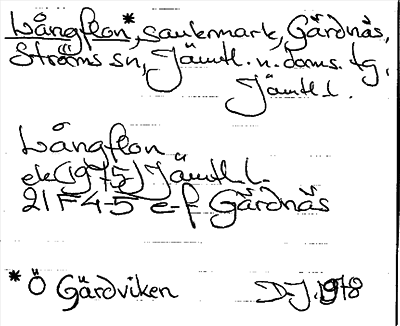 Långflon*, sankmark, Gärdnäs,
Ströms sn, Jämtl. n. doms. tg,
Jämtl. l.
Långflon
ek (1975) Jämtl. l.
21 F 4-5 e-f Gärdnäs
* Ö Gärdviken D-J. 1978